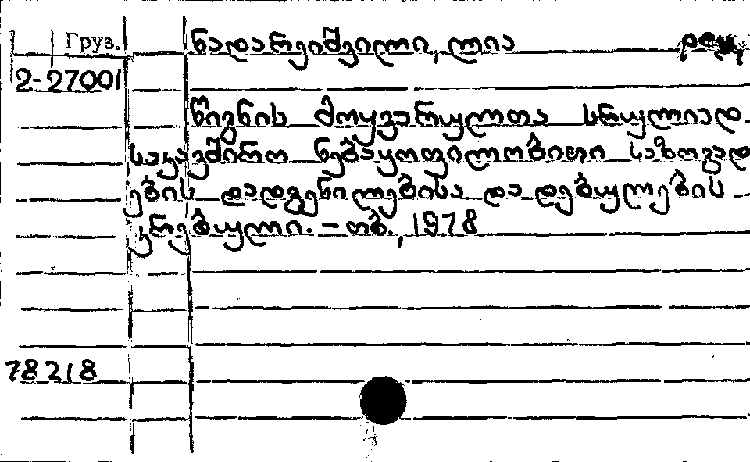 Груз.
ნადარეიშვილი, ლია რედ.
2-27001
წიგნის მოყვარულთა სრულიად
საკავშირო ნებაყოფილობითი საზოგად
ების დადგენილებისა და დებულების
კრებული. – თბ., 1978
78218